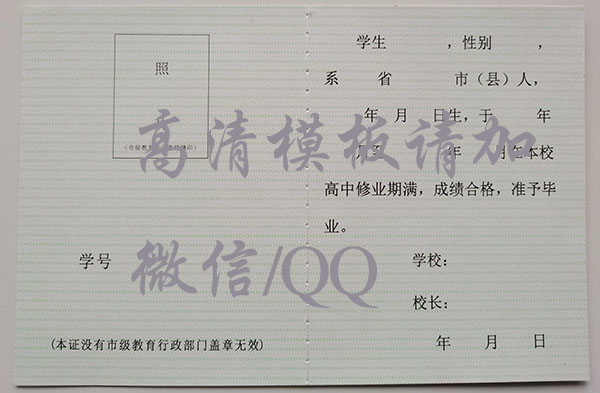 照
(市级教育
印)
学号
(本证没有市级教育行政部门盖章无效)
学生 ，性别 ，
系 省 市（县）人，
年 月 日生，于 年
月至 年 月在本校
高中修业期满，成绩合格，准予毕
业。
学校：
校长：
年 月 日
高清模板请加
微信/QQ